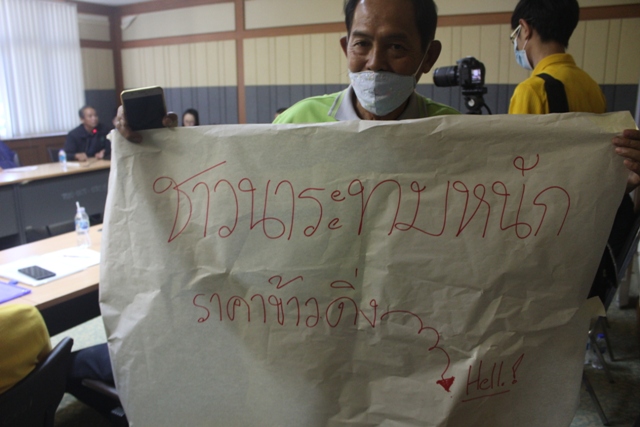 ชาวนาระทมหนัก
ราคาข้าวดิ่ง
Hell.!